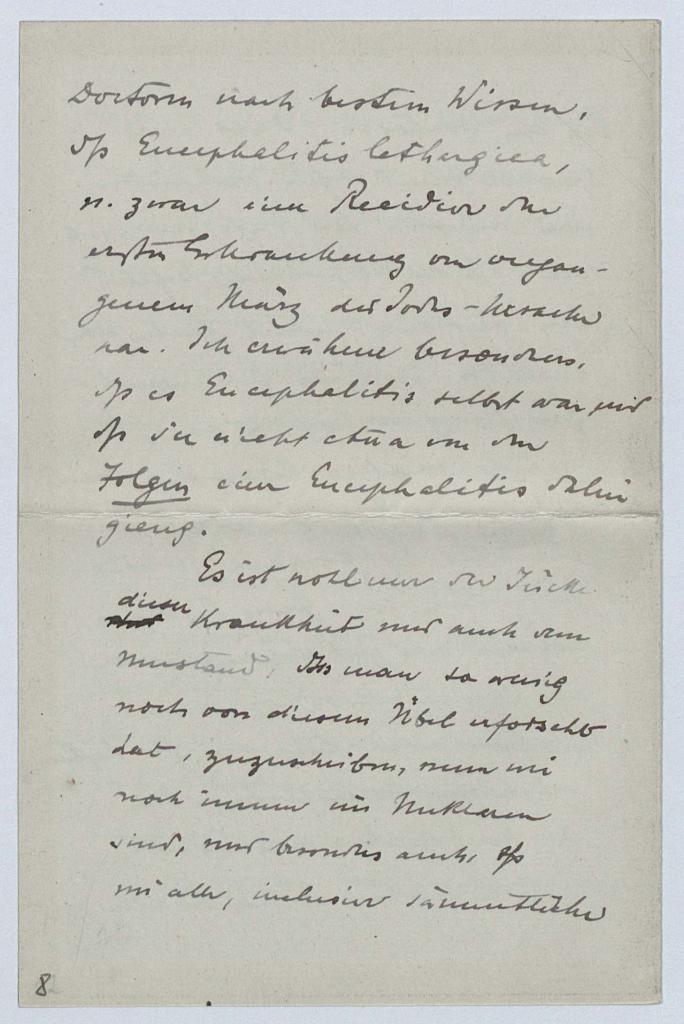 Doctoren nach bestem Wissen,
dß Encephalitis lethargica,
u. zwar eine Recidive der
ersten Erkrankung vom vergan-
genem März die Todes-Ursache
war. Ich erwähne besonders,
dß es Encephalitis selbst war und
dß sie nicht etwa an den
Folgen einer Encephalitis dahin
gieng.
Es ist wohl nur der Tücke
dieser Krankheit und auch dem
Umstand, dß man so wenig
noch von diesem Übel erforscht
hat, zuzuschreiben, wenn wir
noch immer im Unklaren
sind, und besonders auch, dß
wir alle, inclusive sämmtliche
8